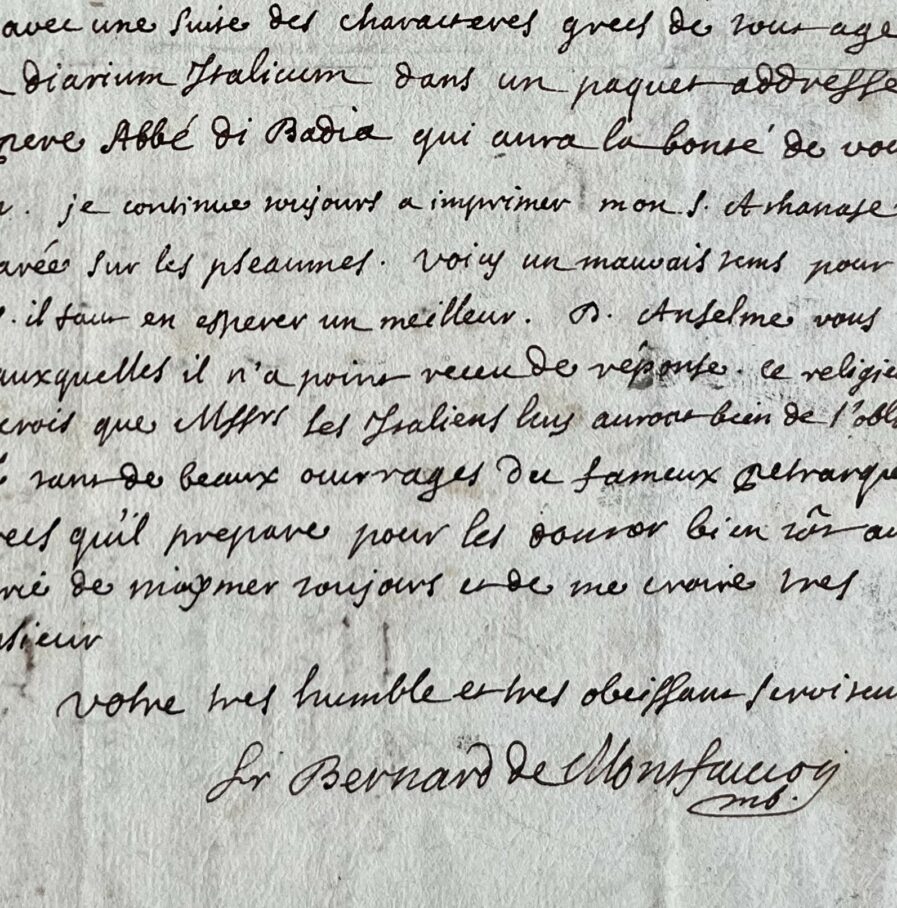 avec une suite des characteres grecs de tout age
diarium Italicum dans un paquet addresse
pere Abbé di Badia qui aura la bonté de vou
r. je continue toujours a imprimer mon S. Athanase
arée sur les pseaumes. voicy un mauvais tems pour
s. il faut en esperer un meilleur. D. Anselme vous
auxquelles il n'a point receu de réponse. ce religie
crois que Mssrs les Italiens luy auront bien de l'obli
tant de beaux ouvrages du fameux petrarque
recs qu'il prepare pour les donner bien tôt au
rié de m'aymer toujours et de me croire tres
nsieur
votre tres humble et tres obeissant serviteu
fr Bernard de Montfaucon
mb.